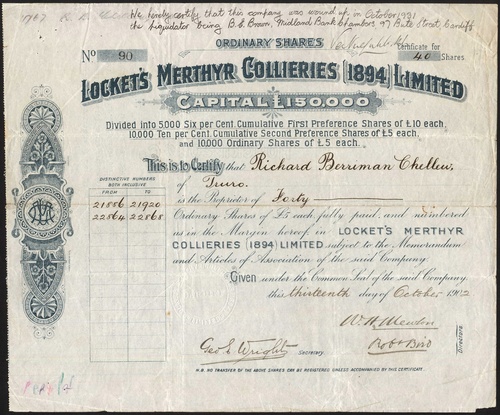 We hereby certify that this company was wound up in October 1931
the liquidator being B. J. Brown, Midland Bank Chambers, 97 Bute Street, Cardiff
ORDINARY SHARES
No 90
Certificate for
40 Shares
LOCKET'S MERTHYR COLLIERIES (1894) LIMITED
CAPITAL £150,000
Divided into 5,000 Six per Cent. Cumulative First Preference Shares of £10 each,
10,000 Ten per Cent. Cumulative Second Preference Shares of £5 each,
and 10,000 Ordinary Shares of £5 each.
This is to Certify that Richard Berriman Chellew,
of Truro.
is the Proprietor of Forty
Ordinary Shares of £5 each, fully paid, and numbered
as in the Margin hereof, in LOCKET'S MERTHYR
COLLIERIES (1894) LIMITED subject to the Memorandum
and Articles of Association of the said Company.
Given under the Common Seal of the said Company
this thirteenth day of October 1902
DISTINCTIVE NUMBERS
BOTH INCLUSIVE
FROM TO
21886 21920
22864 22868
Geo. S. Wright Secretary.
Directors
N.B. NO TRANSFER OF THE ABOVE SHARES CAN BE REGISTERED UNLESS ACCOMPANIED BY THIS CERTIFICATE.